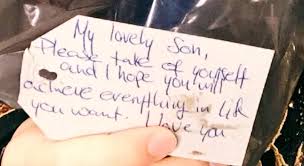 My lovely Son,
Please take of yourself
and I hope you will
achieve everything in life
you want. I love you